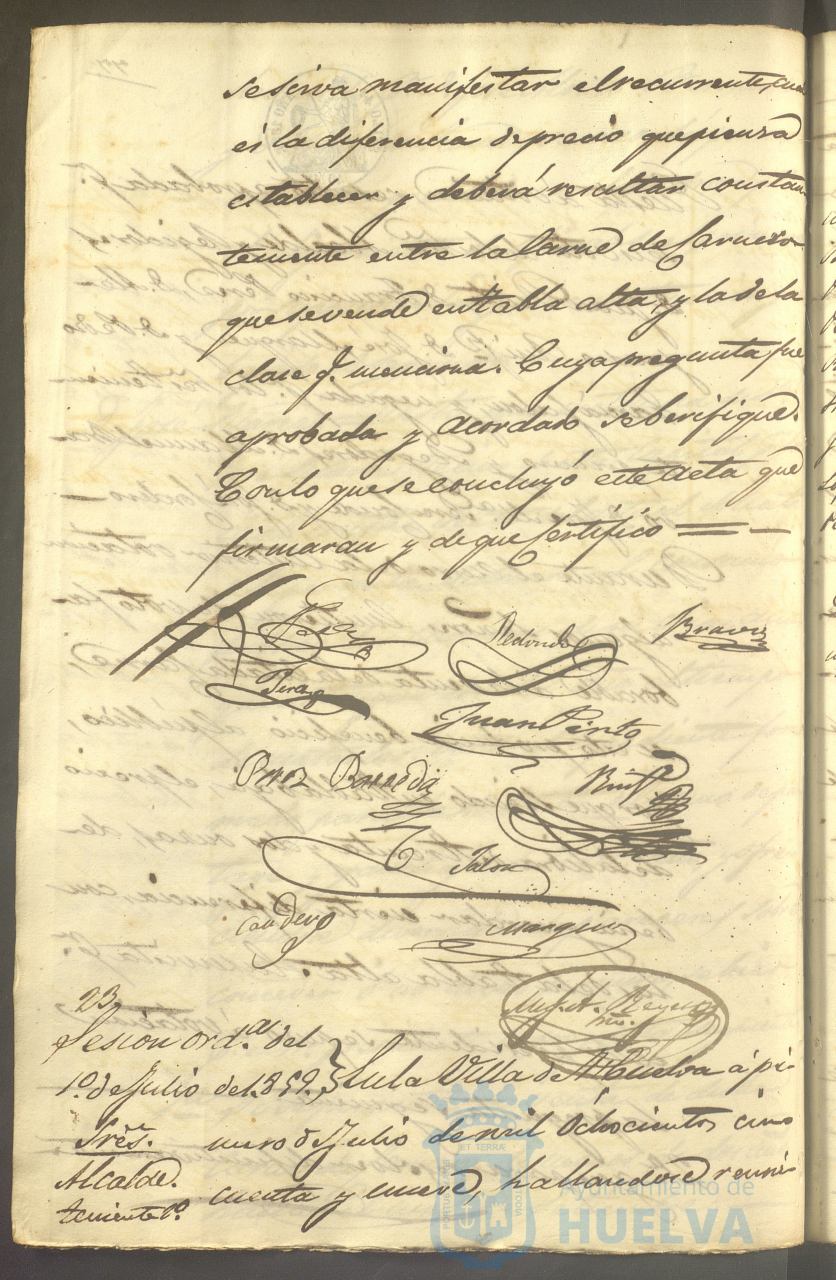 se sirva manifestar el recurrente, cual
es la diferencia de precio que piensa
establecer y deberá resaltar constan
temente entre la Carne de Carnero
que se vende en tabla alta, y la de la
clase q.e menciona. Cuya pregunta fue
aprobada y acordado se berifique.
Con lo que se concluyó este acta que
firmaran y de que Certifico
Redondo
Bravo
Perez
Juan Pinto
Barreda
Ruiz
Jalon
Candero
Marquez
23
Sesion ord.a del
1.º de Julio de 1.859.
En la Villa de Huelva á pi
mero de Julio de mil Ochocientos cin
cuenta y nueve, hallandose reuni
Sres.
Alcalde.
teniente 1.º
ET TERRA
Ayuntamiento de
HUELVA